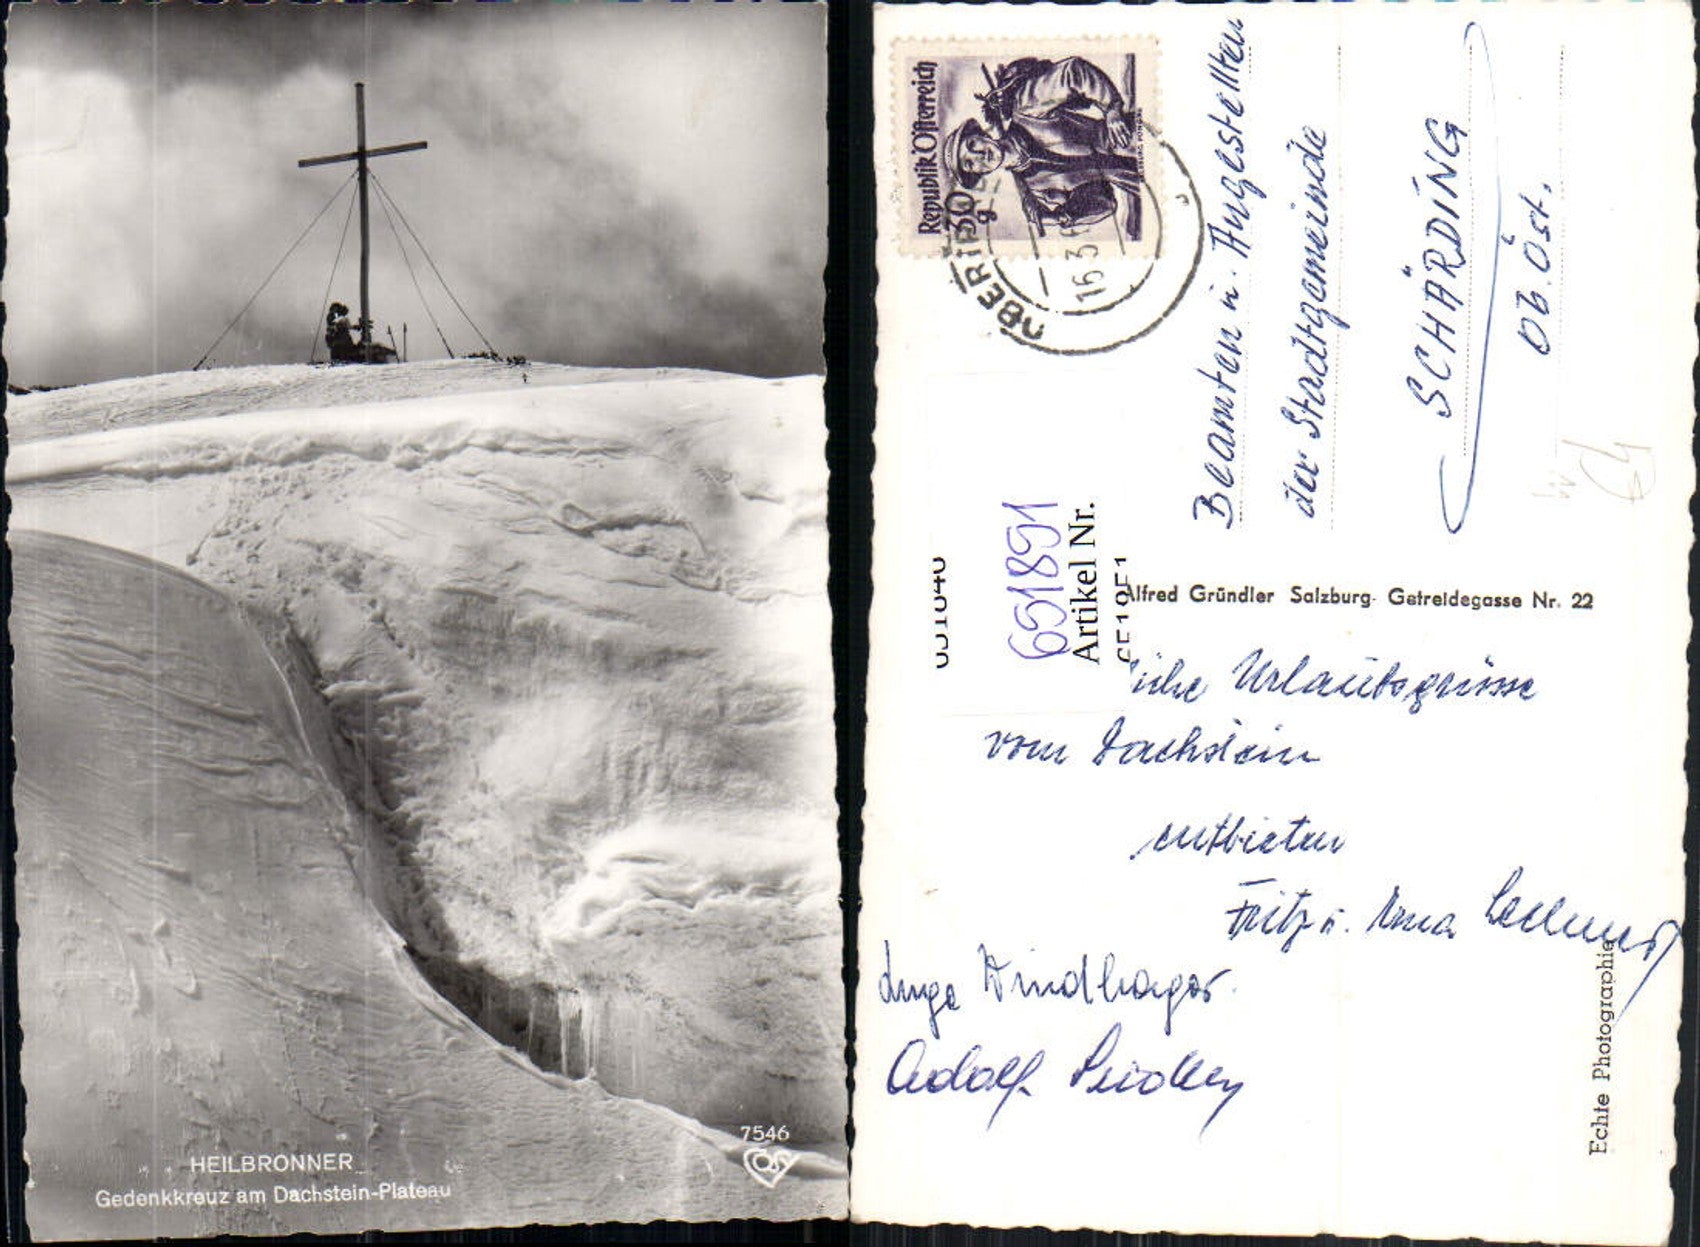 7546
HEILBRONNER
Gedenkkreuz am Dachstein-Plateau
Republik Österreich
30 g
16.3
Beamten u. Angestellten
der Stadtgemeinde
SCHÄRDING
Ob. Öst.
651891
Artikel Nr.
Alfred Gründler Salzburg- Getreidegasse Nr. 22
Urlaubsgrüsse
vom Dachstein
entbieten
Fritz u. Erna
Inge Windhager
Adolf
Echte Photographie